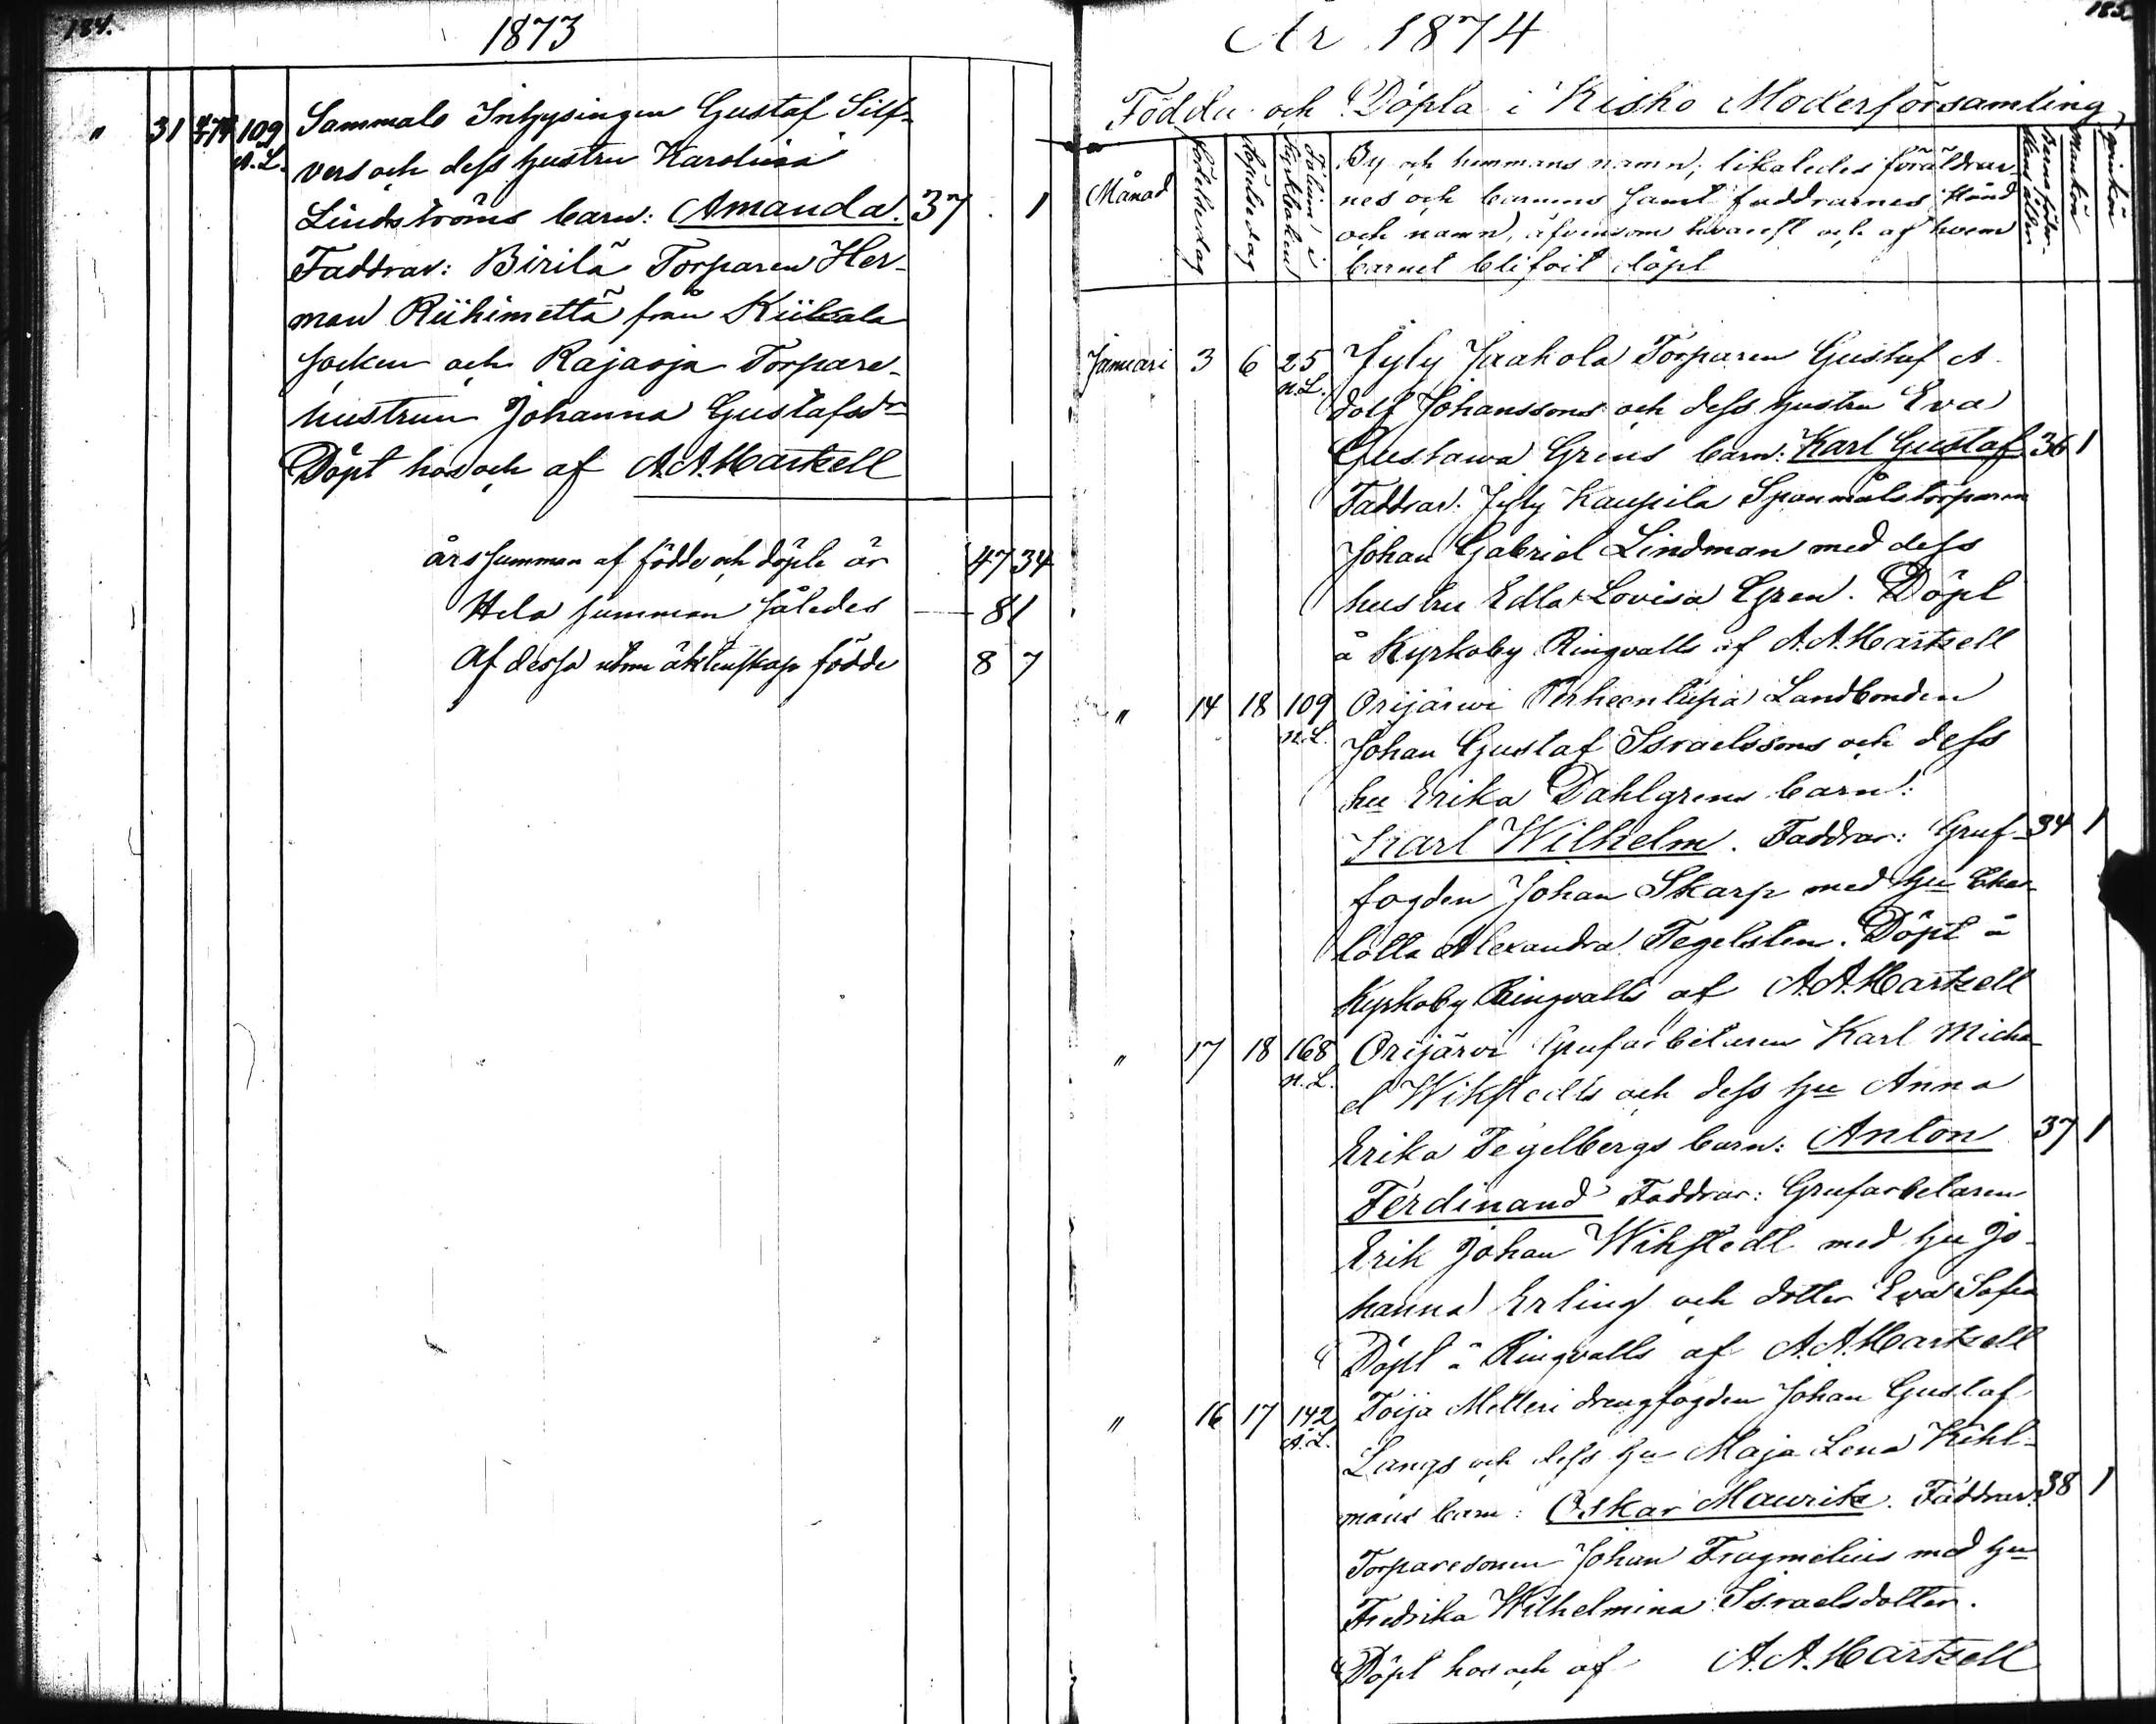 184.
1873
" 31 4/1 74 109 Sammalo Inhysingen Gustaf Silf-
A. L. vers och dess hustru Karolina
Lindströms barn: Amanda. 37 1
Faddrar: Birilä Torparen Her-
man Riihimettä från Kiikala
socken och Rajasja Torpare-
hustrun Johanna Gustafsdr
Döpt hos och af A. A. Hartzell
års summan af födde och döpte är 47 34
Hela summan således 81
Af dessa utom äktenskap födde 8 7
185.
År 1874
Födda och Döpta i Kisko Moderförsamling
Månad Födelsedag Döpelsedag Folium i Kyrkboken By och hemmans namn; likaledes föräldrar- Mankön Qvinkön
nes och barnens samt faddrarnes stånd
och namn, äfvensom hvarest och af hvem
barnet blifvit döpt
Januari 3 6 25 Jyly Jaakola Torparen Gustaf A-
n. L. dolf Johanssons och dess hustru Eva
Gustawa Grens barn: Karl Gustaf 36 1
Faddrar: Jyly Kaupila Spanmålstorparen
Johan Gabriel Lindman med dess
hustru Edla Lovisa Gren. Döpt
å Kyrkoby Ringvalls af A. A. Hartzell
" 14 18 109 Orijärwi Landbonden
n. L. Johan Gustaf Israelssons och dess
hu Erika Dahlgrens barn:
Karl Wilhelm. Faddrar: Gruf- 34 1
fogden Johan Skarp med hu Char-
lotta Alexandra Tegelsten. Döpt å
Kyrkoby Ringvalls af A. A. Hartzell
" 17 18 168 Orijärvi Grufarbetaren Karl Micha-
n. L. el Wikstedts och dess hu Anna
Erika Tegelbergs barn: Anton 37 1
Ferdinand Faddrar: Grufarbetaren
Erik Johan Wikstedt med hu Jo-
hanna Erling och dotter Eva Sofia
Döpt å Ringvalls af A. A. Hartzell
" 16 17 142 Toija Melleri drengfogden Johan Gustaf
A. L. Langs och dess hu Maja Lena Kihl-
mans barn: Oskar Mauritz. Faddrar: 38 1
Torparesonen Johan Fragmelius med hu
Fredrika Wilhelmina Israelsdotter.
Döpt hos och af A. A. Hartzell